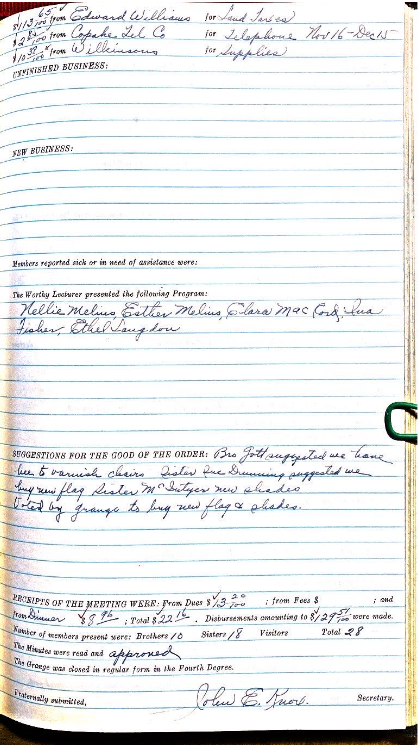 $113 65/100 from Edward Williams for Land Taxes
$2 84/100 from Copake Tel Co for Telephone Nov 16-Dec 15
$10 39/100 from Wilkinsons for Supplies
UNFINISHED BUSINESS:
NEW BUSINESS:
Members reported sick or in need of assistance were:
The Worthy Lecturer presented the following Program:
Nellie Melius, Esther Melius, Clara Mac Cord, Ina
Fisher, Ethel Langdon
SUGGESTIONS FOR THE GOOD OF THE ORDER: Bro Gott suggested we have
bee to varnish chairs Sister Sue Dunning suggested we
buy new flag Sister McIntyer new shades
Voted by grange to buy new flag & shades.
RECEIPTS OF THE MEETING WERE: From Dues $13 20/100 ; from Fees $ ; and
from Dinner $8 96 ; Total $22 16. Disbursements amounting to $129 51/100 were made.
Number of members present were: Brothers 10 Sisters 18 Visitors Total 28
The Minutes were read and approved
The Grange was closed in regular form in the Fourth Degree.
Fraternally submitted, John E. Knox. Secretary.